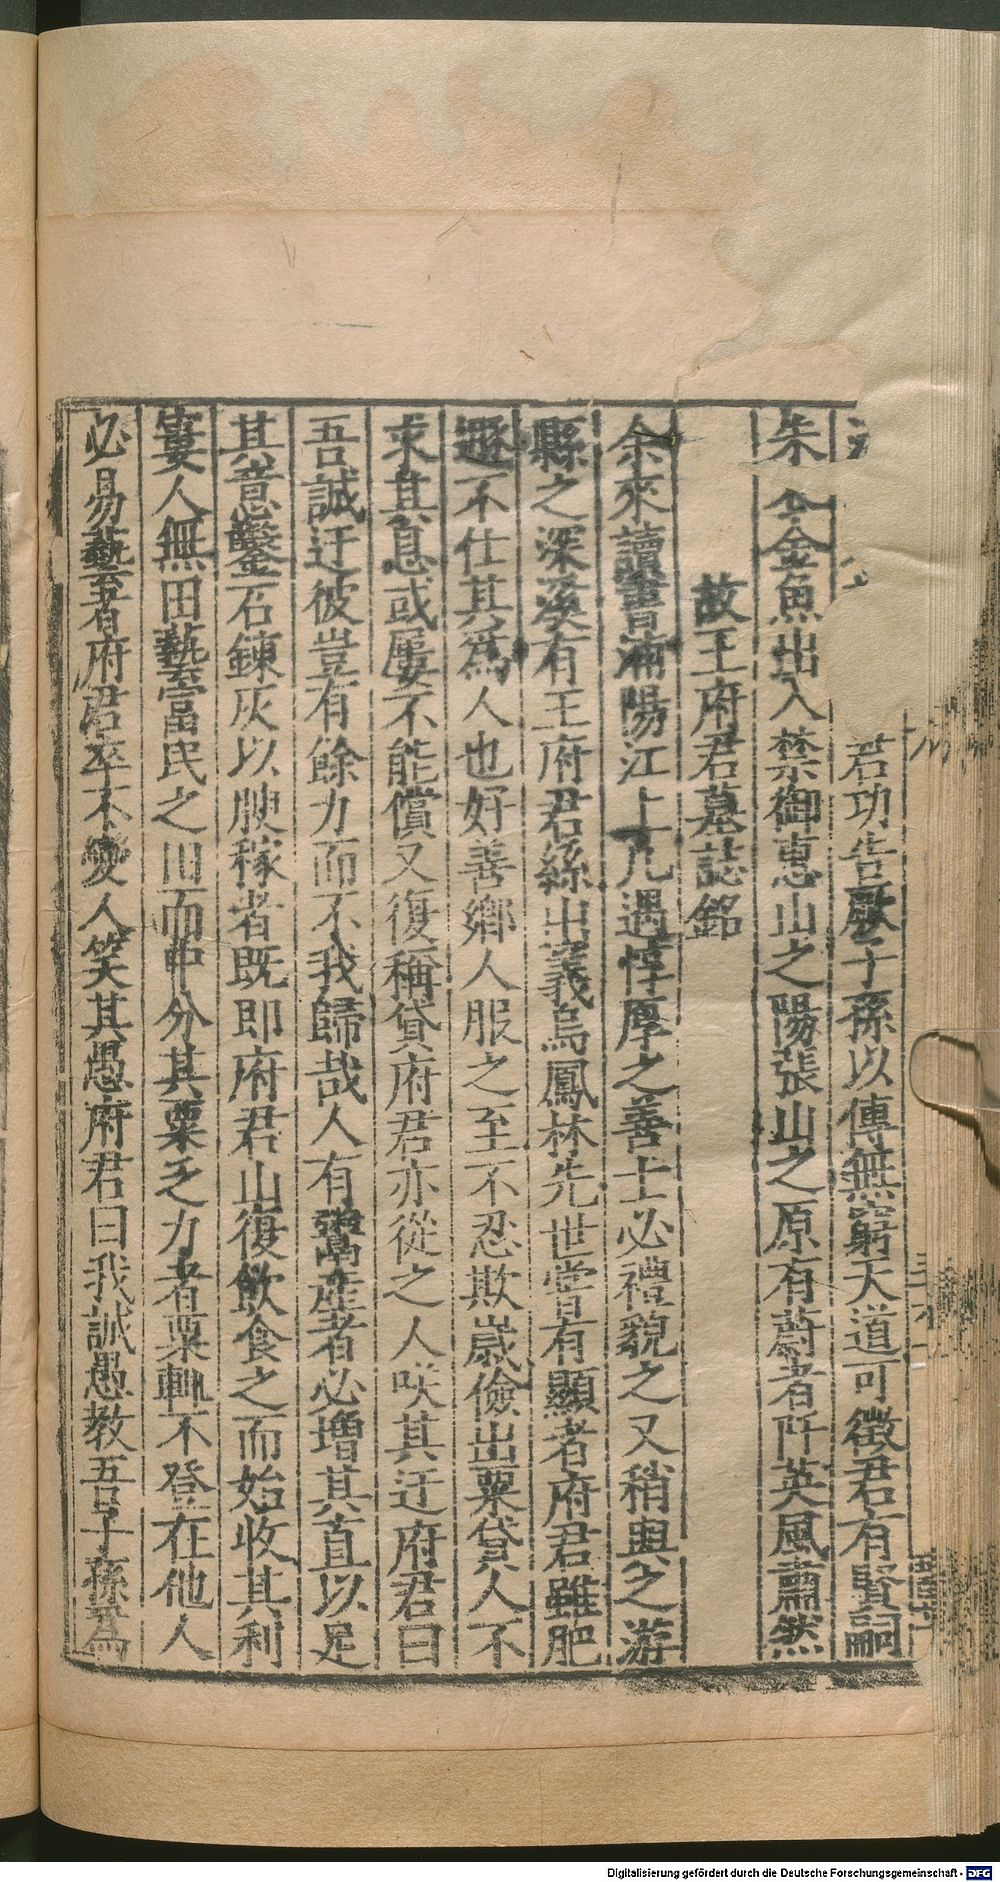 君功告厥子孫以傳無窮天道可徵君有賢嗣
朱 金魚出入禁御惠山之陽張山之原有蔚者阡英風肅然
故王府君墓誌銘
余來讀書浦陽江上凡遇惇厚之善士必禮貌之又稍與之游
縣之深溪有王府君絲出義烏鳳林先世嘗有顯者府君雖肥
遯不仕其為人也好善鄉人服之至不忍欺歲儉出粟貸人不
求其息或屢不能償又復稱貸府君亦從之人咲其迂府君曰
吾誠迂彼豈有餘力而不我歸哉人有鬻產者必增其直以足
其意鑿石鍊灰以腴稼者既即府君山復飲食之而始收其利
窶人無田藝富民之田而中分其粟乏力者粟輒不登在他人
必易藝者府君卒不變人笑其愚府君曰我誠愚教吾子孫為
Digitalisierung gefördert durch die Deutsche Forschungsgemeinschaft - DFG